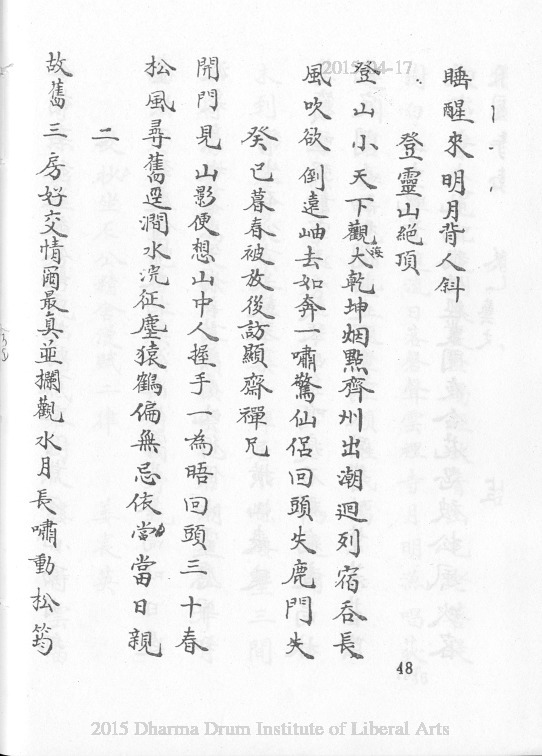 睡醒來明月背人斜
登靈山絕頂
登山小天下觀海大乾坤烟點齊州出潮迴列宿吞長
風吹欲倒遠岫去如奔一嘯驚仙侶回頭失鹿門失
癸巳暮春被放後訪顯齋禪兄
開門見山影便想山中人握手一為晤回頭三十春
松風尋舊逕澗水洗征塵猿鶴偏無忌依當當日親
二
故舊三房好交情爾最真並攔觀水月長嘯動松筠
48
2015-04-17
2015 Dharma Drum Institute of Liberal Arts